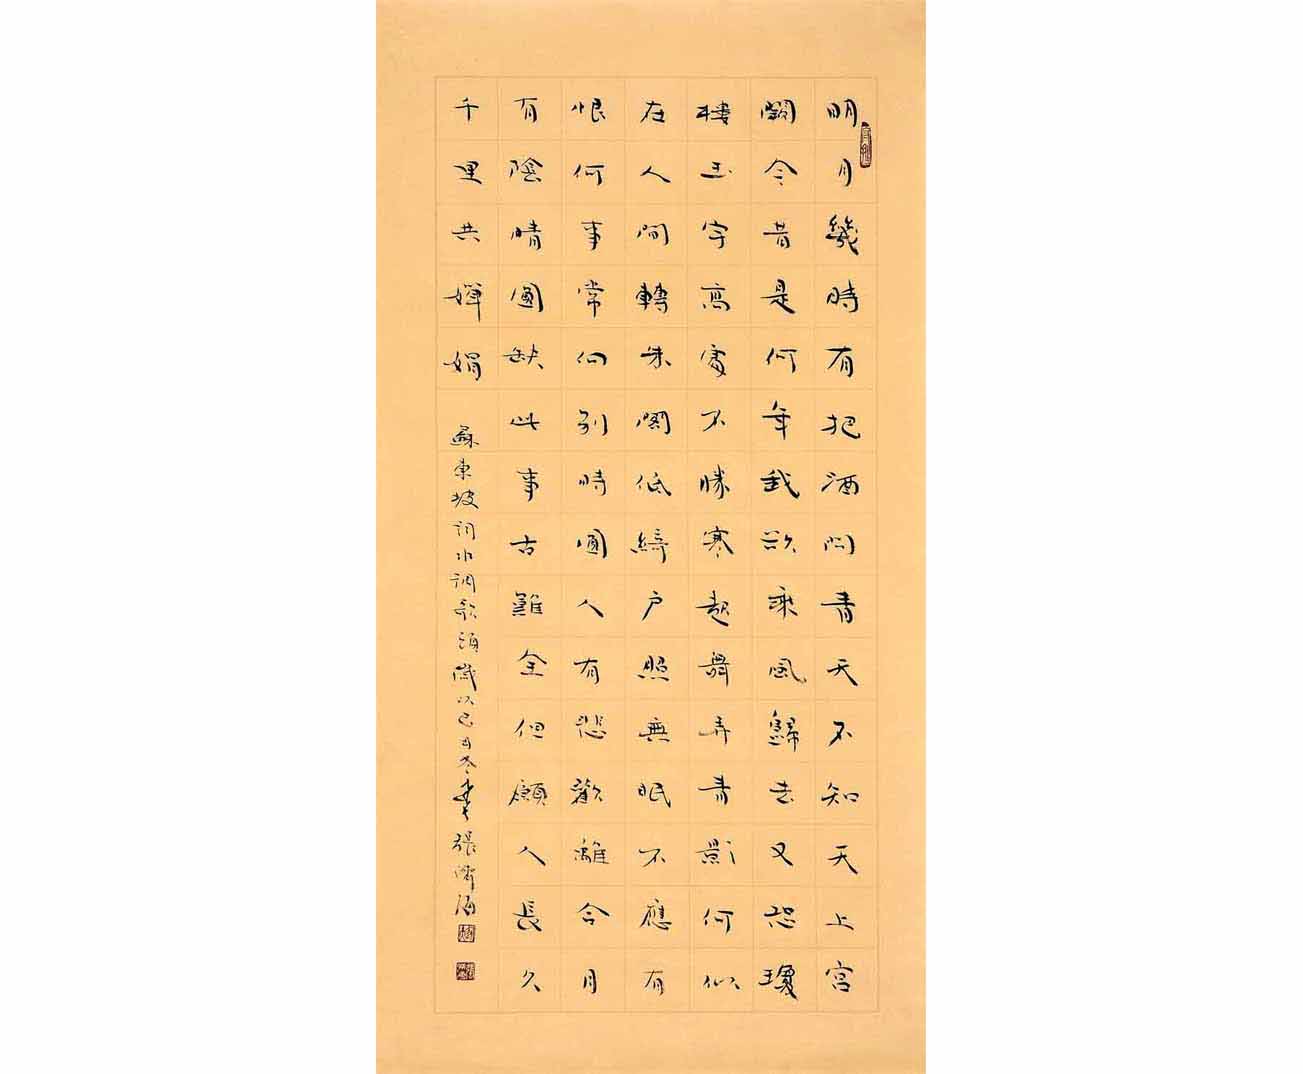 明月幾時有把酒問青天不知天上宮
闕今昔是何年我欲乘風歸去又恐瓊
樓玉宇高處不勝寒起舞弄青影何似
在人間轉朱閣低綺戶照無眠不應有
恨何事常向別時圓人有悲歡離合月
有陰晴圓缺此事古難全但願人長久
千里共嬋娟
蘇東坡詞水調歌頭歲次己丑冬書張濟海